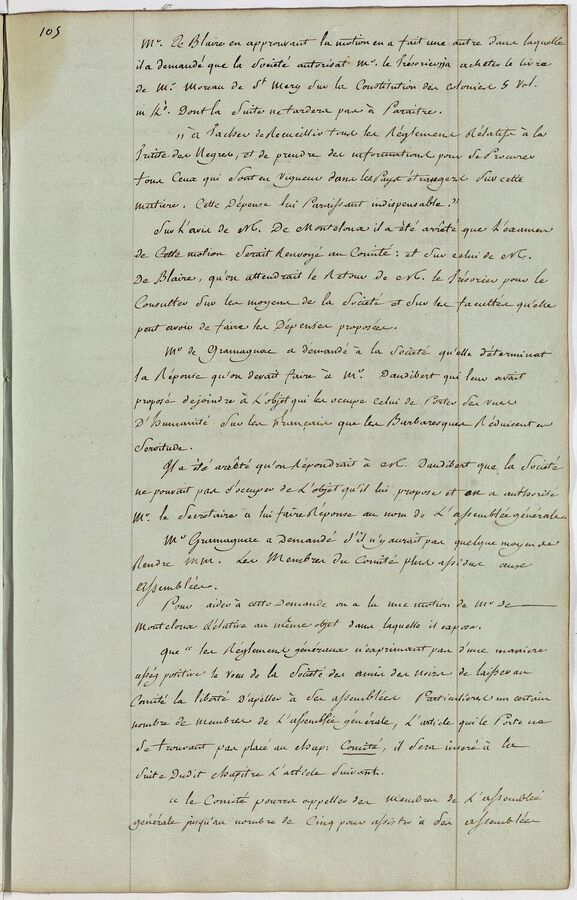 105
Mr. De Blaire en approuvant la motion en a fait une autre dans laquelle
il a demandé que la Société autorisat Mr. le Trésorier à acheter le livre
de Mr. Moreau de St. Mery sur la Constitution des colonies 5 Vol.
in 4o. Dont la Suite ne tardera pas à Paraitre.
,, à Tacher de Recueillir tous les Réglemens Rélatifs à la
Traite des Negres, et de prendre des informations pour se Procurer
tous Ceux qui sont en Vigueur dans les Pays étrangers sur cette
matiere. Cette Dépense lui Paraissant indispensable."
Sur l'avis de M. De Montcloux il a été arrêté que l'examen
de Cette motion Serait Renvoyé au Comité: et sur celui de M.
De Blaire, qu'on attendrait le Retour de M. le Trésorier pour le
Consulter sur les moyens de la Société et sur les facultés qu'elle
peut avoir de faire les Dépenses proposées.
Mr de Gramagnac a demandé à la Société qu'elle déterminat
la Réponse qu'on devait faire à Mr. Daudibert qui leur avait
proposé de joindre à L'objet qui les occupe celui de Porter des vues
D'humanité sur les Français que les Barbaresques Réduisent en
Servitude.
Il a été arrêté qu'on Répondrait à M. Daudibert que la Société
ne pouvait pas s'occuper de L'objet qu'il lui propose et on a authorisé
Mr. le Secretaire à lui faire Réponse au nom de L'assemblée générale.
Mr Gramagnac a Demandé s'il n'y aurait pas quelque moyen de
Rendre MM. Les Membres du Comité plus assidus aux
assemblées.
Pour aider à cette Demande on a lu une motion de Mr de
Montcloux Rélative au même objet dans laquelle il expose.
que " les Réglemens généraux n'exprimant pas d'une maniere
assés positive le vœu de la Société des amis des noirs de laisser au
Comité la liberté d'apeller à ses assemblées Particulieres un certain
nombre de membres de L'assemblée générale, L'article qui le Porte ne
se trouvant pas placé au chap: Comité, il sera inseré à la
suite Dudit chapitre L'article suivant.
" le Comité pourra appeller des membres de L'assemblée
générale jusqu'au nombre de Cinq pour assister à ses assemblées